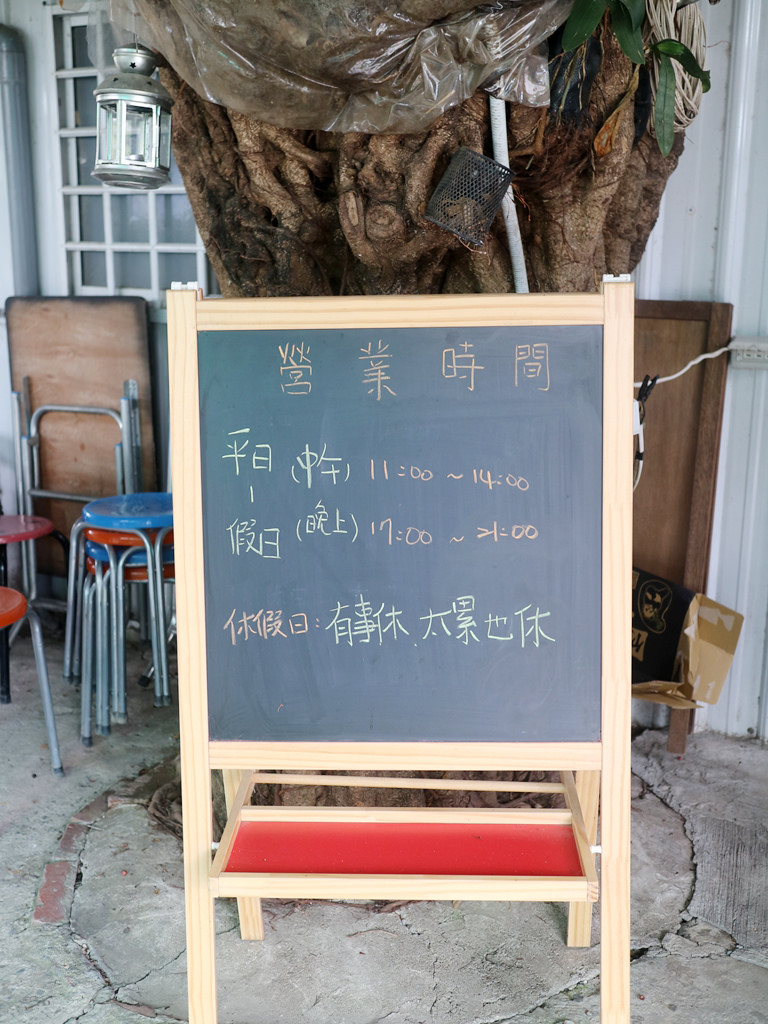 營業時間
平日 (中午) 11:00 ~ 14:00
|
假日 (晚上) 17:00 ~ 21:00
休假日: 有事休、太累也休